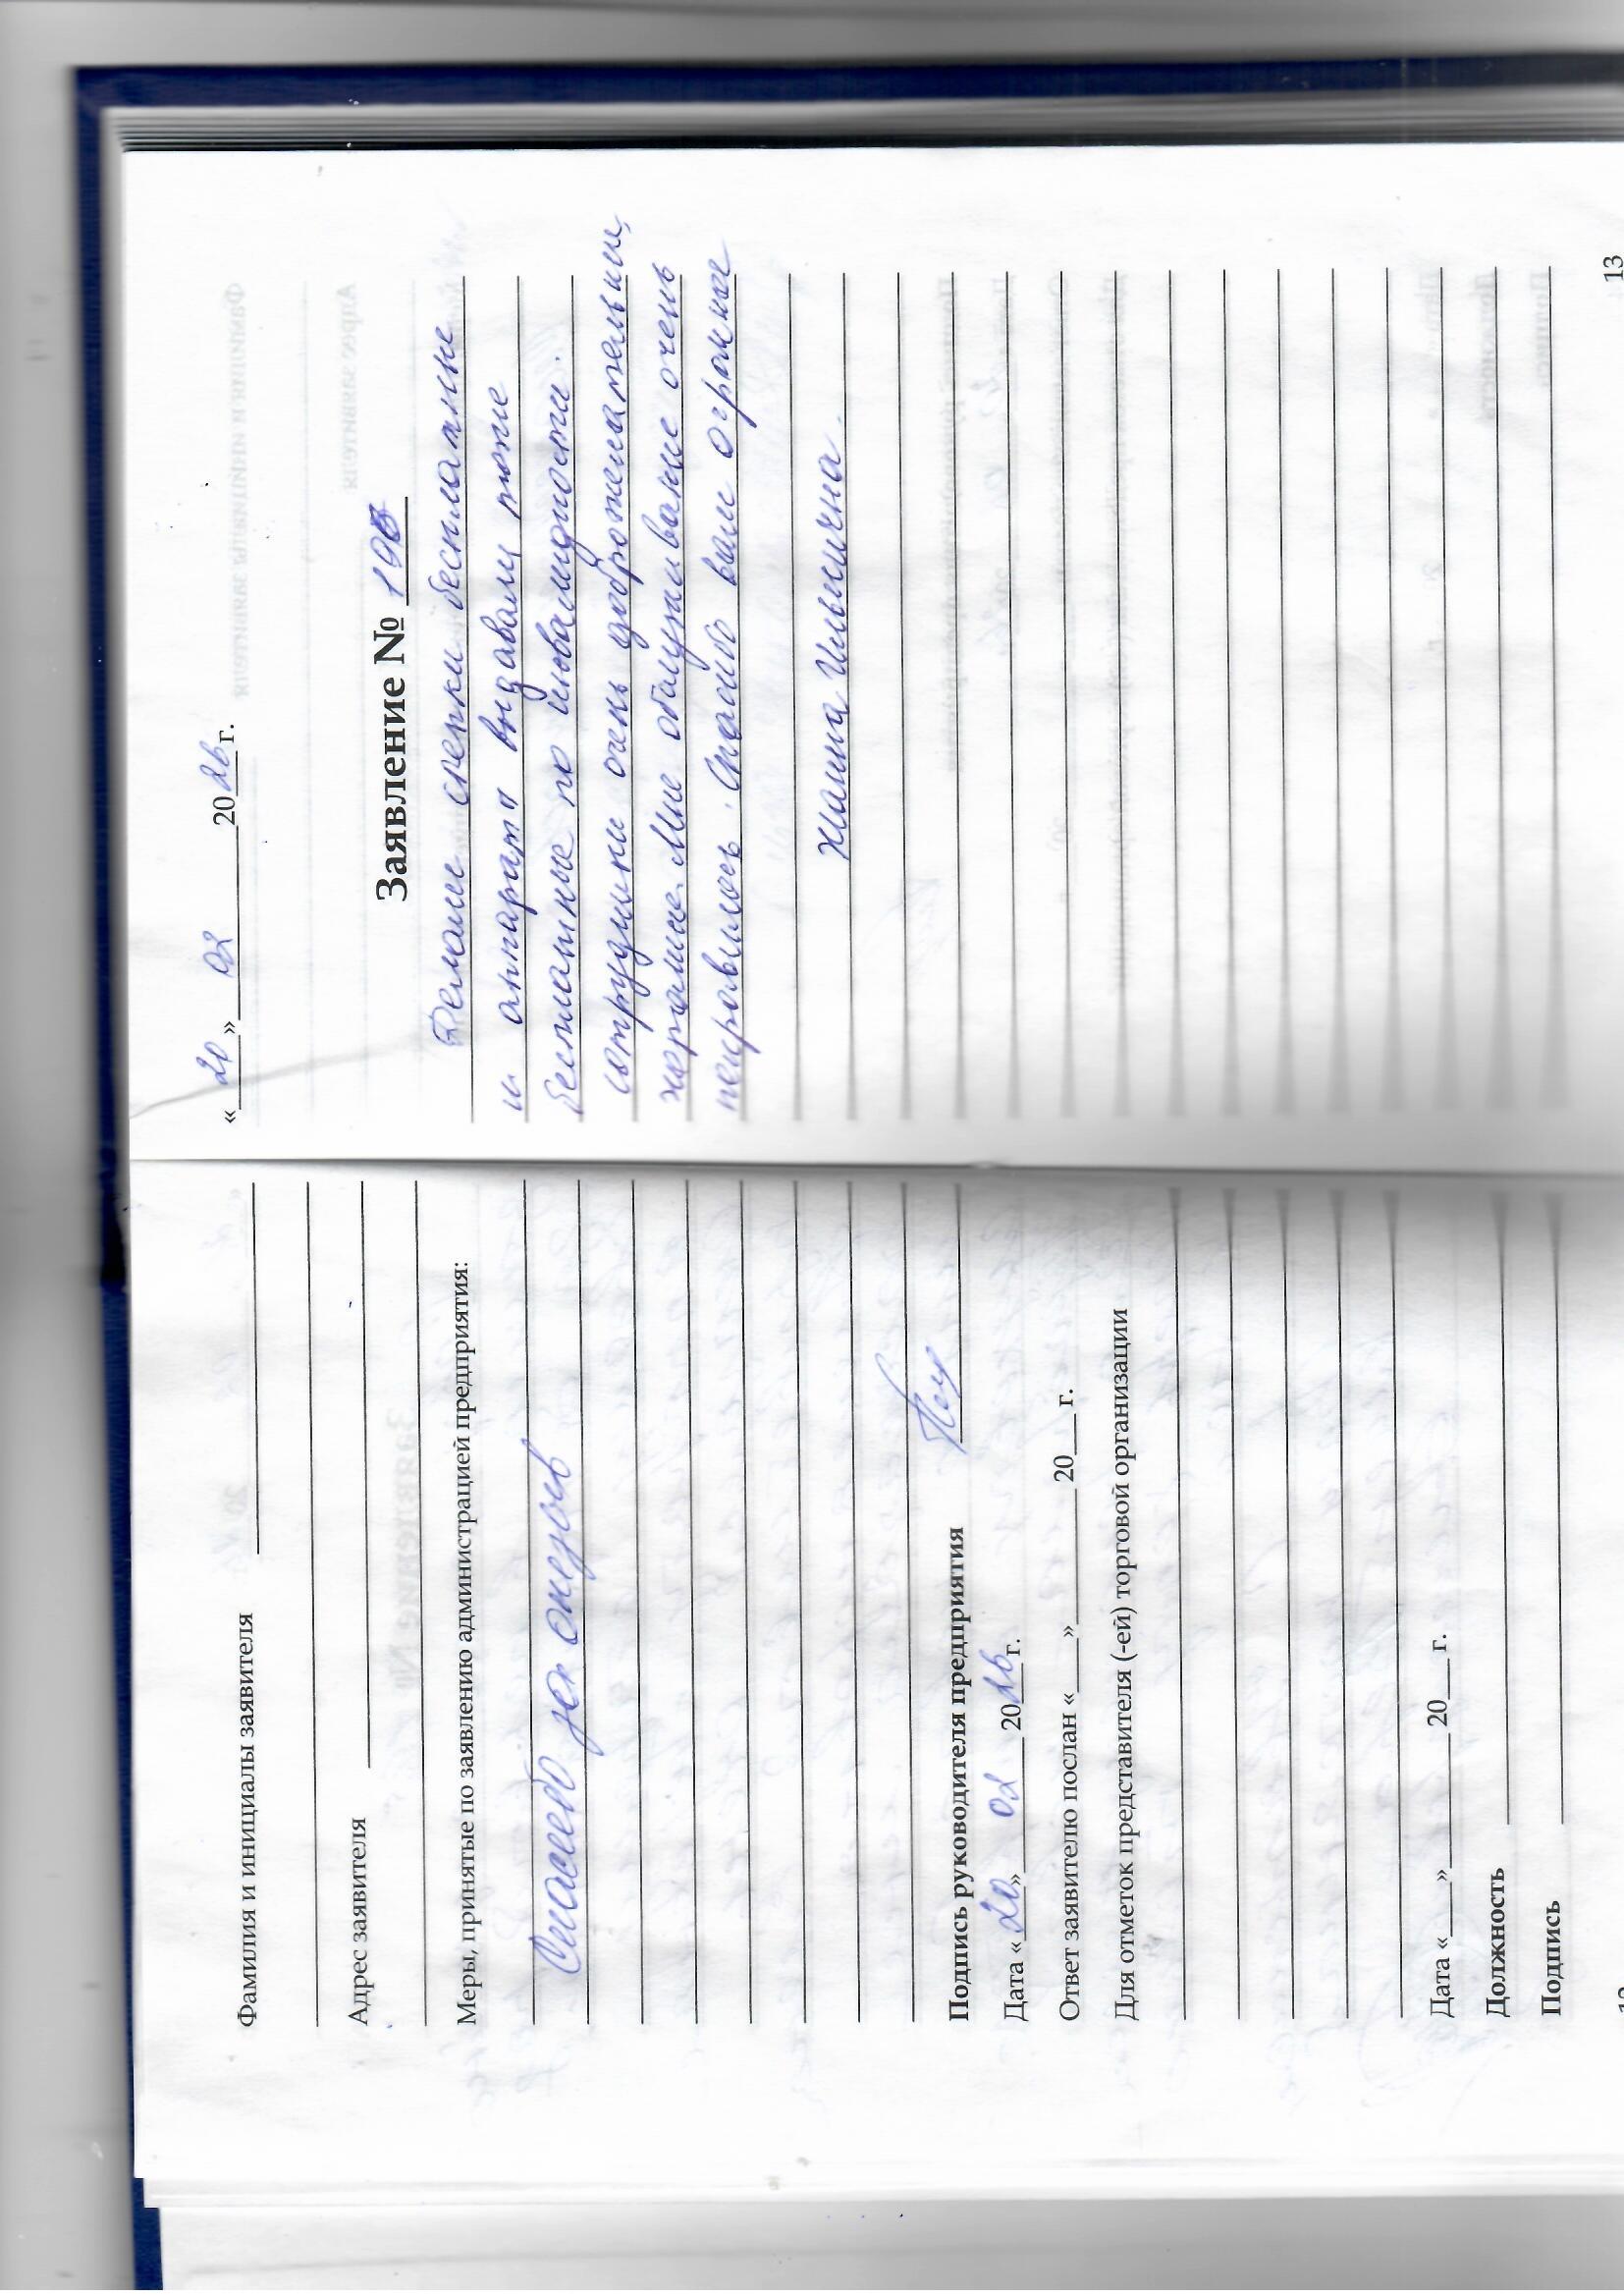 Фамилия и инициалы заявителя
Адрес заявителя
Меры, принятые по заявлению администрацией предприятия:
Спасибо за
Подпись руководителя предприятия
Дата «20» 02 2026 г.
Ответ заявителю послан «___» ______ 20__ г.
Для отметок представителя (-ей) торговой организации
Дата «___» ______ 20__ г.
Должность
Подпись
«20» 02 2026 г.
Заявление №
Делали слепки бесплатные
и аппарат выдавали тоже
бесплатные по инвалидности.
сотрудники очень доброжелательные,
хорошие. Мне обслуживание очень
Спасибо вам огромное
Жанна Ильинична.
13